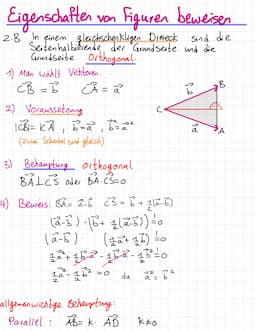 Eigenschaften von Figuren beweisen
z.B. In einem gleichschenkligen Dreieck sind die
Seitenhalbierende der Grundseite und die
Grundseite Orthogonal.
1) Man wählt Vektoren.
C⃗B = b⃗ C⃗A = a⃗
2) Voraussetzung
|CB| = |CA| , b⃗ = a⃗ , b⃗² = a⃗²
(zwei Schenkel sind gleich)
B
b⃗
C
S
a⃗
A
3) Behauptung Orthogonal
B⃗A ⊥ C⃗S oder B⃗A · C⃗S = 0
4) Beweis: B⃗A = a⃗ - b⃗ C⃗S = b⃗ + ½(a⃗ - b⃗)
(a⃗ - b⃗) · (b⃗ + ½(a⃗ - b⃗)) = 0
(a⃗ - b⃗) · (½a⃗ + ½b⃗) = 0
½a⃗² + ½b⃗·a⃗ - ½b⃗·a⃗ - ½b⃗² = 0
½a⃗² - ½b⃗² = 0 da a⃗² = b⃗²
Behauptung:
Parallel : A⃗B = k · A⃗D k≠0